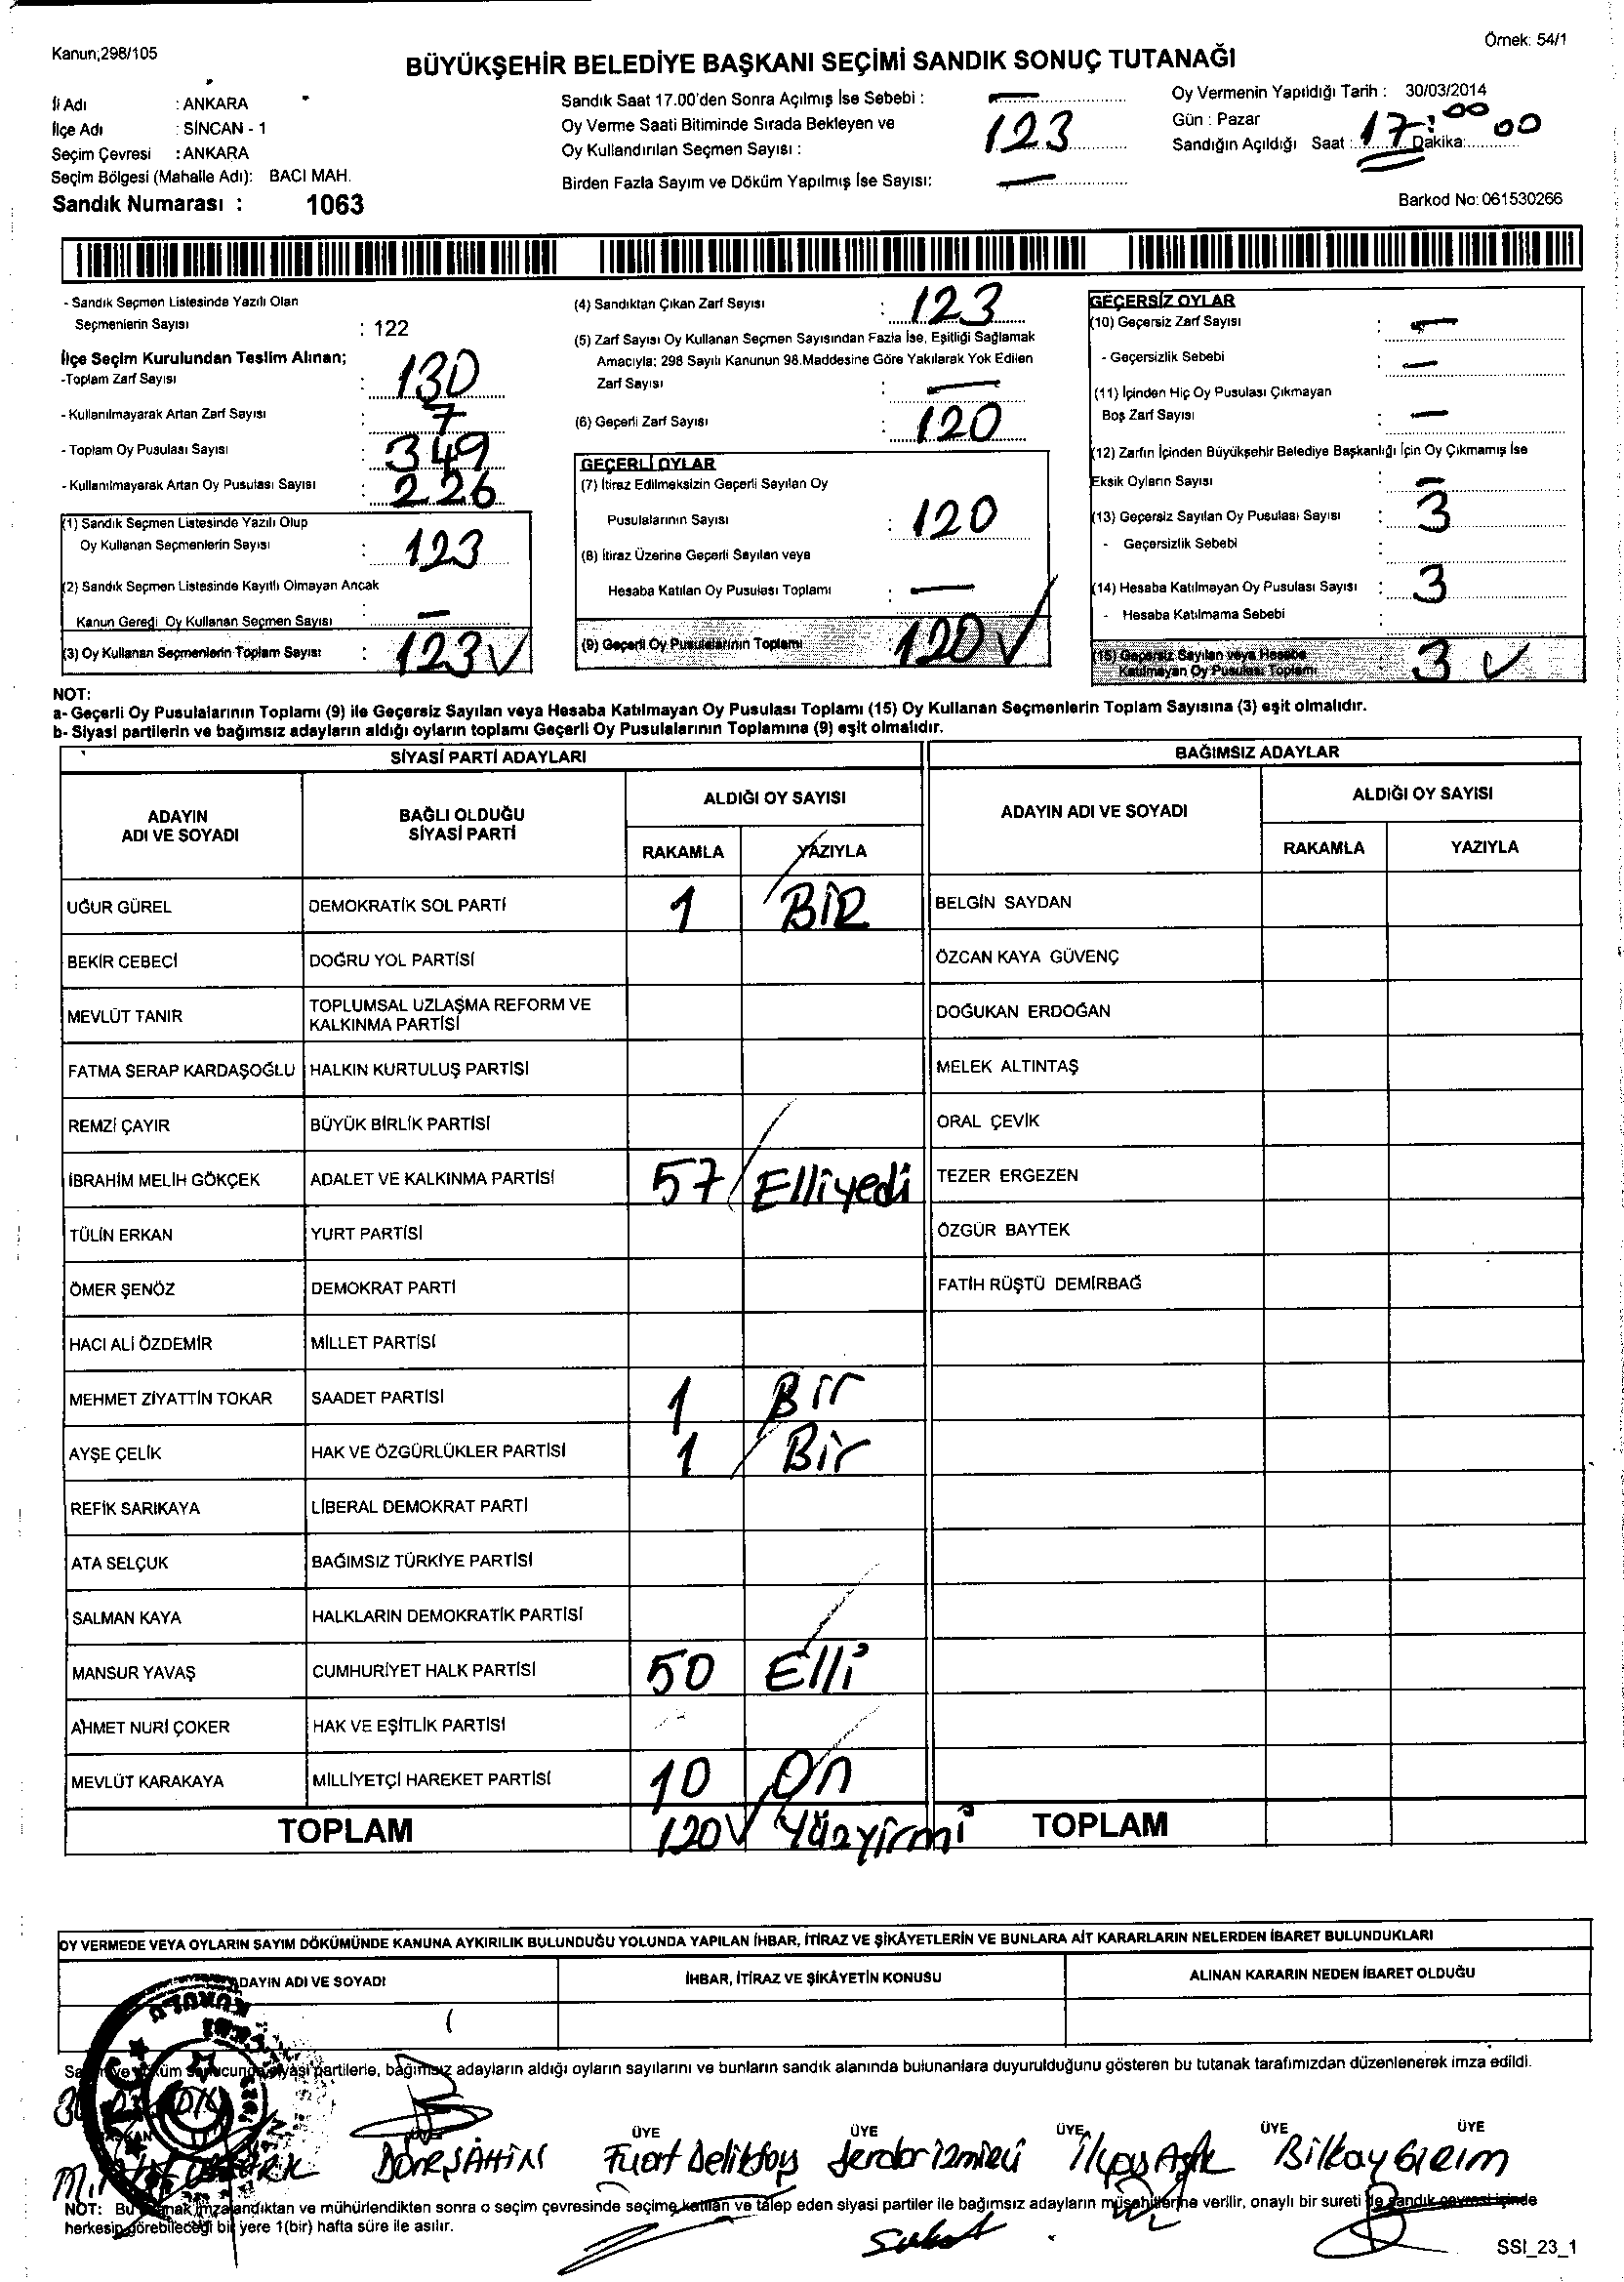 Kanun;298/105
Örnek: 54/1
BÜYÜKŞEHİR BELEDİYE BAŞKANI SEÇİMİ SANDIK SONUÇ TUTANAĞI
İl Adı : ANKARA
İlçe Adı : SİNCAN - 1
Seçim Çevresi : ANKARA
Seçim Bölgesi (Mahalle Adı): BACI MAH.
Sandık Numarası : 1063
Sandık Saat 17.00'den Sonra Açılmış İse Sebebi : —
Oy Verme Saati Bitiminde Sırada Bekleyen ve
Oy Kullandırılan Seçmen Sayısı : 123
Birden Fazla Sayım ve Döküm Yapılmış İse Sayısı: —
Oy Vermenin Yapıldığı Tarih : 30/03/2014
Gün : Pazar
Sandığın Açıldığı Saat : 17:00 Dakika: 00
Barkod No: 061530266
- Sandık Seçmen Listesinde Yazılı Olan
Seçmenlerin Sayısı : 122
İlçe Seçim Kurulundan Teslim Alınan;
-Toplam Zarf Sayısı : 130
- Kullanılmayarak Artan Zarf Sayısı : 7
- Toplam Oy Pusulası Sayısı : 349
- Kullanılmayarak Artan Oy Pusulası Sayısı : 226
(1) Sandık Seçmen Listesinde Yazılı Olup
Oy Kullanan Seçmenlerin Sayısı : 123
(2) Sandık Seçmen Listesinde Kayıtlı Olmayan Ancak
Kanun Gereği Oy Kullanan Seçmen Sayısı : —
(3) Oy Kullanan Seçmenlerin Toplam Sayısı : 123 ✓
(4) Sandıktan Çıkan Zarf Sayısı : 123
(5) Zarf Sayısı Oy Kullanan Seçmen Sayısından Fazla İse, Eşitliği Sağlamak
Amacıyla; 298 Sayılı Kanunun 98.Maddesine Göre Yakılarak Yok Edilen
Zarf Sayısı : —
(6) Geçerli Zarf Sayısı : 120
GEÇERLİ OYLAR
(7) İtiraz Edilmeksizin Geçerli Sayılan Oy
Pusulalarının Sayısı : 120
(8) İtiraz Üzerine Geçerli Sayılan veya
Hesaba Katılan Oy Pusulası Toplamı : —
(9) Geçerli Oy Pusulalarının Toplamı : 120 ✓
GEÇERSİZ OYLAR
(10) Geçersiz Zarf Sayısı : —
- Geçersizlik Sebebi : —
(11) İçinden Hiç Oy Pusulası Çıkmayan
Boş Zarf Sayısı : —
(12) Zarfın İçinden Büyükşehir Belediye Başkanlığı İçin Oy Çıkmamış İse
Eksik Oyların Sayısı : —
(13) Geçersiz Sayılan Oy Pusulası Sayısı : 3
- Geçersizlik Sebebi :
(14) Hesaba Katılmayan Oy Pusulası Sayısı : 3
- Hesaba Katılmama Sebebi :
(15) Geçersiz Sayılan veya Hesaba
Katılmayan Oy Pusulası Toplamı : 3 ✓
NOT:
a- Geçerli Oy Pusulalarının Toplamı (9) ile Geçersiz Sayılan veya Hesaba Katılmayan Oy Pusulası Toplamı (15) Oy Kullanan Seçmenlerin Toplam Sayısına (3) eşit olmalıdır.
b- Siyasi partilerin ve bağımsız adayların aldığı oyların toplamı Geçerli Oy Pusulalarının Toplamına (9) eşit olmalıdır.
SİYASİ PARTİ ADAYLARI
BAĞIMSIZ ADAYLAR
ADAYIN
ADI VE SOYADI
BAĞLI OLDUĞU
SİYASİ PARTİ
ALDIĞI OY SAYISI
RAKAMLA YAZIYLA
ADAYIN ADI VE SOYADI
ALDIĞI OY SAYISI
RAKAMLA YAZIYLA
UĞUR GÜREL DEMOKRATİK SOL PARTİ 1 BİR BELGİN SAYDAN
BEKİR CEBECİ DOĞRU YOL PARTİSİ ÖZCAN KAYA GÜVENÇ
MEVLÜT TANIR TOPLUMSAL UZLAŞMA REFORM VE
KALKINMA PARTİSİ DOĞUKAN ERDOĞAN
FATMA SERAP KARDAŞOĞLU HALKIN KURTULUŞ PARTİSİ MELEK ALTINTAŞ
REMZİ ÇAYIR BÜYÜK BİRLİK PARTİSİ ORAL ÇEVİK
İBRAHİM MELİH GÖKÇEK ADALET VE KALKINMA PARTİSİ 57 Elliyedi TEZER ERGEZEN
TÜLİN ERKAN YURT PARTİSİ ÖZGÜR BAYTEK
ÖMER ŞENÖZ DEMOKRAT PARTİ FATİH RÜŞTÜ DEMİRBAĞ
HACI ALİ ÖZDEMİR MİLLET PARTİSİ
MEHMET ZİYATTİN TOKAR SAADET PARTİSİ 1 Bir
AYŞE ÇELİK HAK VE ÖZGÜRLÜKLER PARTİSİ 1 Bir
REFİK SARIKAYA LİBERAL DEMOKRAT PARTİ
ATA SELÇUK BAĞIMSIZ TÜRKİYE PARTİSİ
SALMAN KAYA HALKLARIN DEMOKRATİK PARTİSİ
MANSUR YAVAŞ CUMHURİYET HALK PARTİSİ 50 Elli
AHMET NURİ ÇOKER HAK VE EŞİTLİK PARTİSİ
MEVLÜT KARAKAYA MİLLİYETÇİ HAREKET PARTİSİ 10 On
TOPLAM 120 ✓ Yüzyirmi TOPLAM
OY VERMEDE VEYA OYLARIN SAYIM DÖKÜMÜNDE KANUNA AYKIRILIK BULUNDUĞU YOLUNDA YAPILAN İHBAR, İTİRAZ VE ŞİKÂYETLERİN VE BUNLARA AİT KARARLARIN NELERDEN İBARET BULUNDUKLARI
ADAYIN ADI VE SOYADI İHBAR, İTİRAZ VE ŞİKÂYETİN KONUSU ALINAN KARARIN NEDEN İBARET OLDUĞU
siyasi partilerle, bağımsız adayların aldığı oyların sayılarını ve bunların sandık alanında bulunanlara duyurulduğunu gösteren bu tutanak tarafımızdan düzenlenerek imza edildi.
ÜYE ÜYE ÜYE ÜYE ÜYE
DÖNE ŞAHİN Fuat Deliktaş Serdar İzmirli İlyas Aşık Bilkay
NOT: Bu imzalandıktan ve mühürlendikten sonra o seçim çevresinde seçime katılan ve talep eden siyasi partiler ile bağımsız adayların müşahitlerine verilir, onaylı bir sureti de sandık çevresi içinde
herkesin görebileceği bir yere 1(bir) hafta süre ile asılır.
SSI_23_1